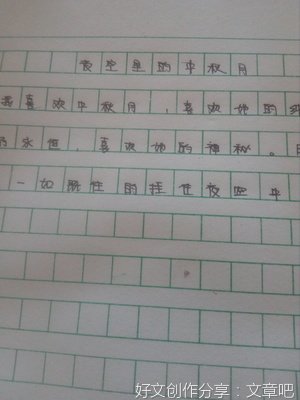 夜空里的中秋月
我喜欢中秋月,喜欢她的纯
为永恒,喜欢她的神秘。
一如既往的挂在夜空中
好文创作分享:文章吧